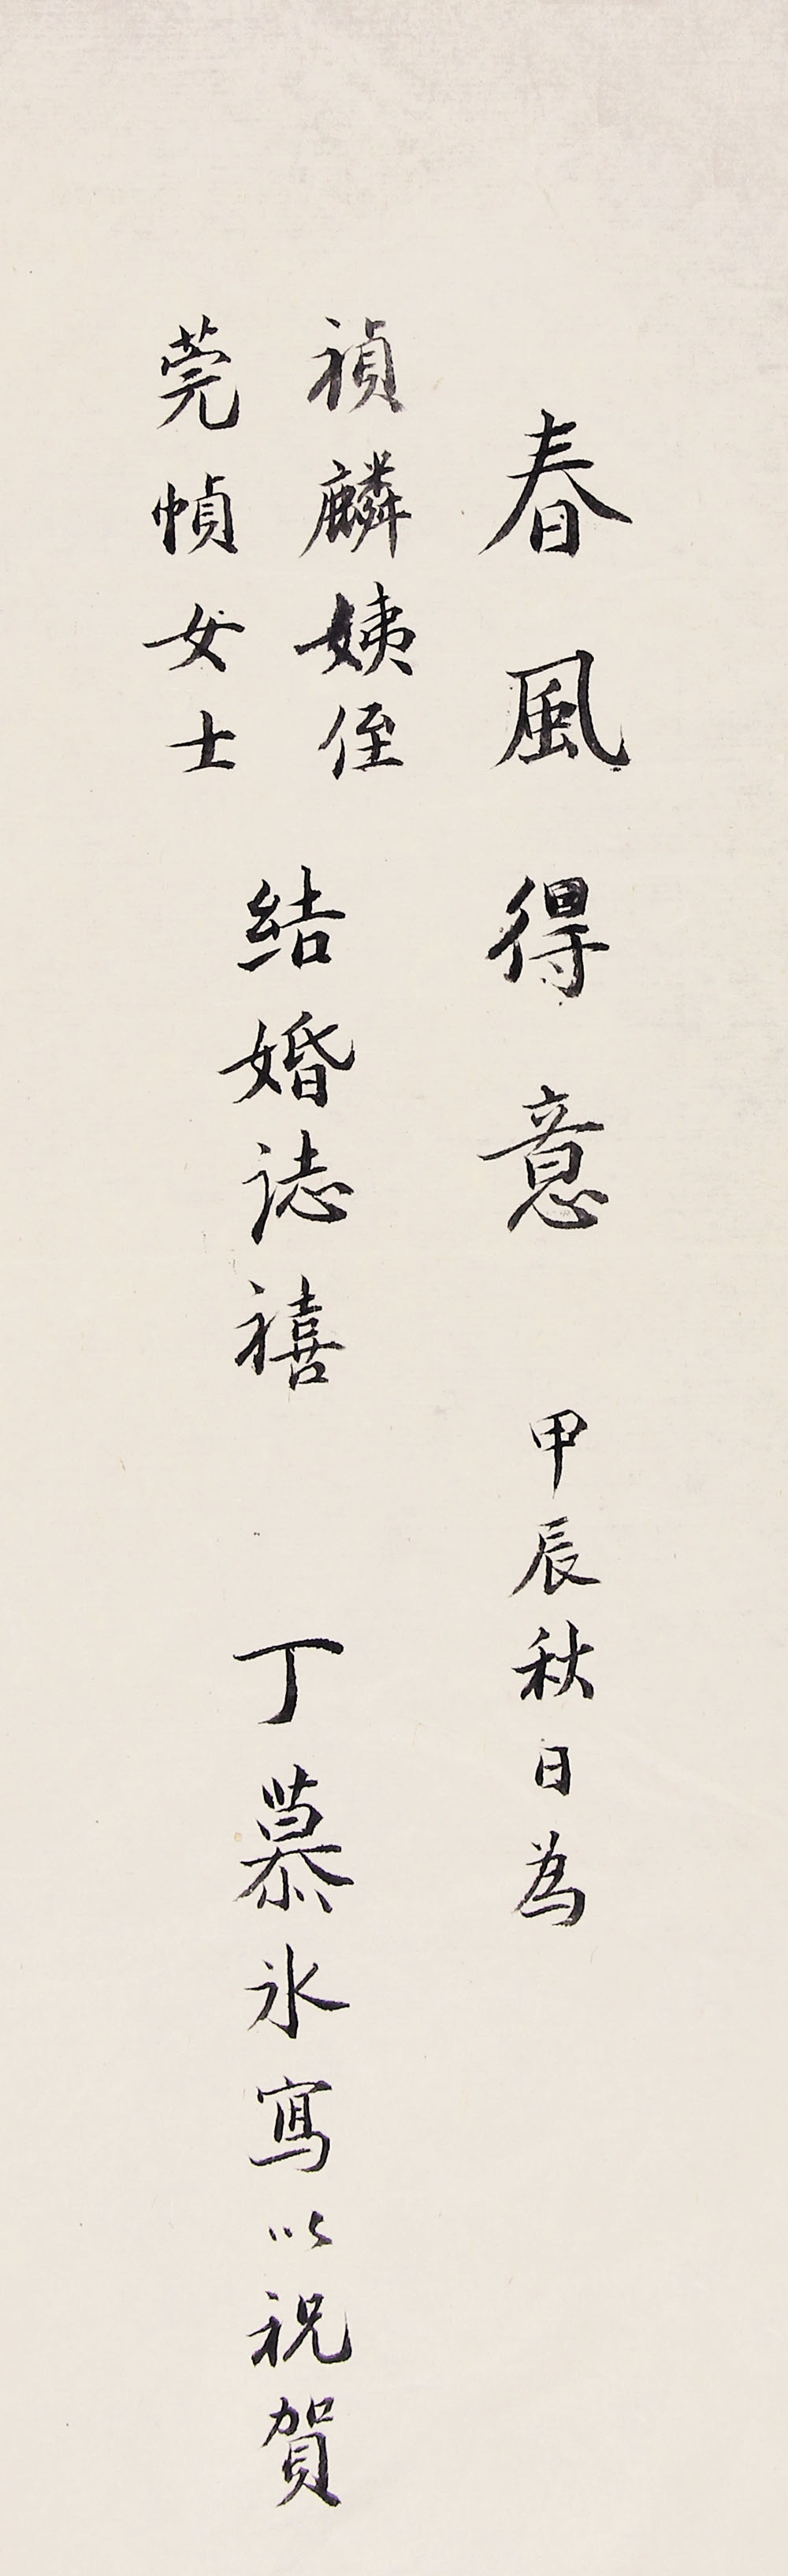 春風得意 甲辰秋日為
禎麟姨侄
莞幀女士
結婚誌禧 丁慕氷寫以祝賀